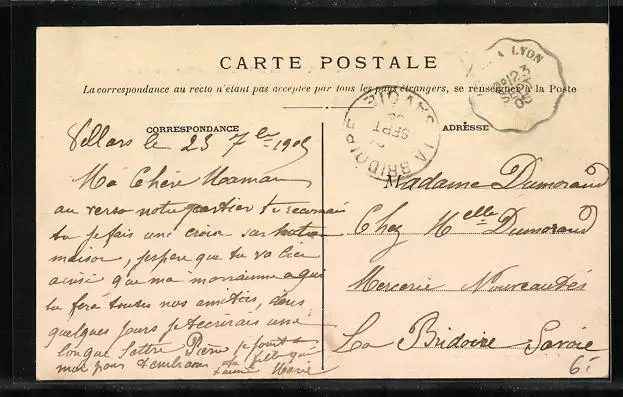 CARTE POSTALE
La correspondance au recto n'étant pas acceptée par tous les pays étrangers, se renseigner à la Poste
CORRESPONDANCE
ADRESSE
LYON
LA BRIDOIRE
SAVOIE
SEPT
Villars le 23 7bre 1905
Ma Chère Maman
au verso notre quartier tu reconnais
tu je fais une croix sur notre
maison, j'espère que tu va bien
ainsi que ma marraine a qui
tu fera toutes nos amitiés, dans
quelques jours je t'ecrirais une
longue lettre Pierre se joint a
moi pour t'embrasser ta fille qui
t'aime Marie
Madame Dumorand
Chez Melle Dumorand
Mercerie Nouveautés
La Bridoire Savoie
6.